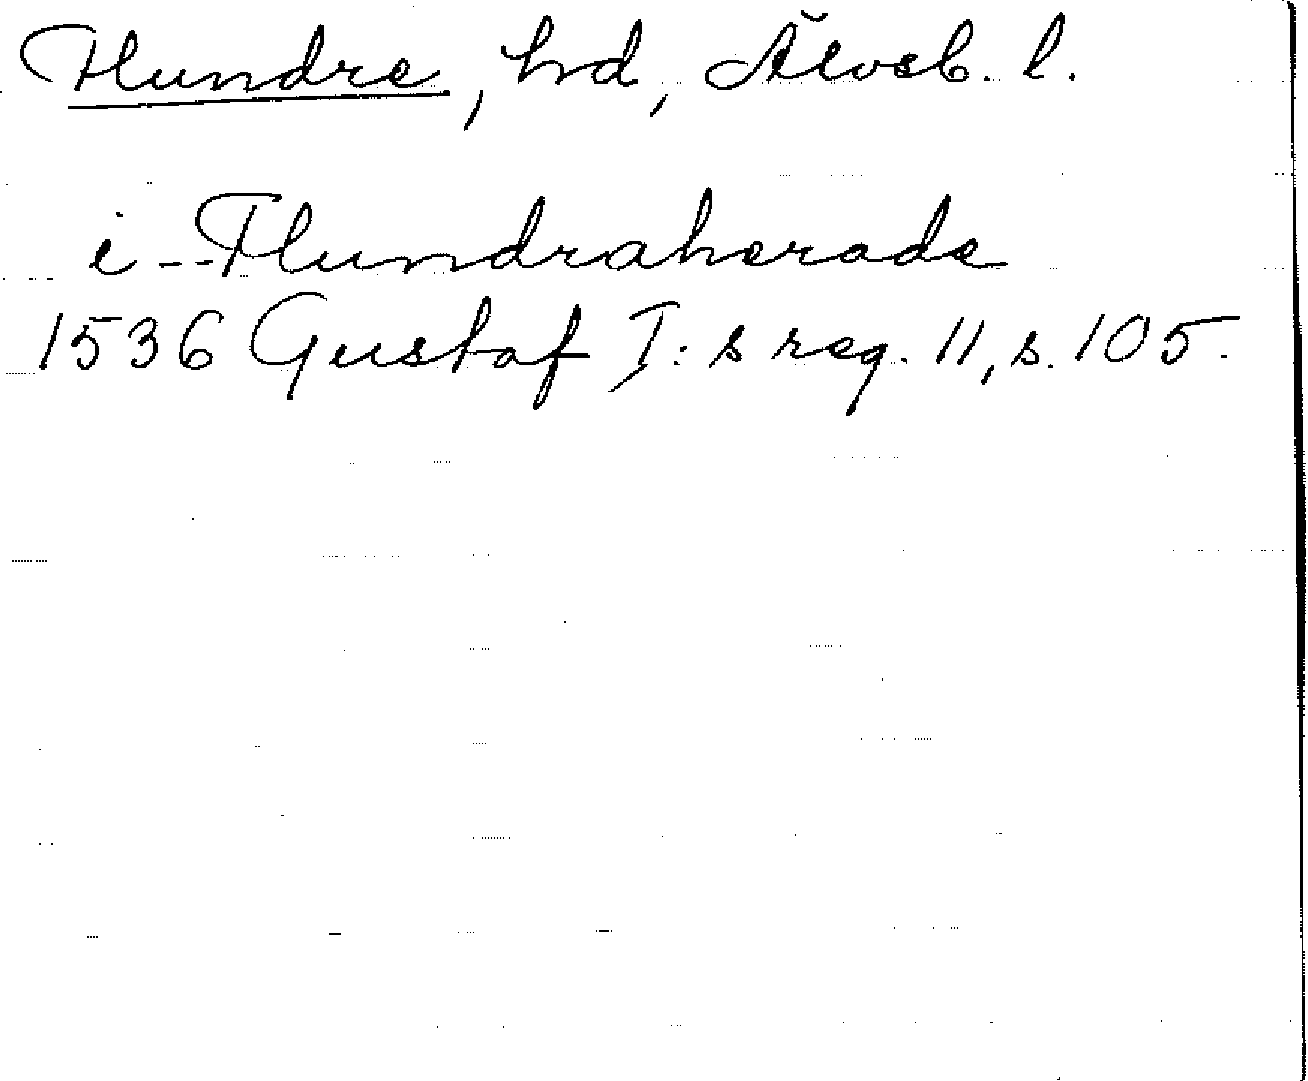 Flundre, hd, Älvsb. l.
i Flundraherade
1536 Gustaf I:s reg. 11, s. 105.